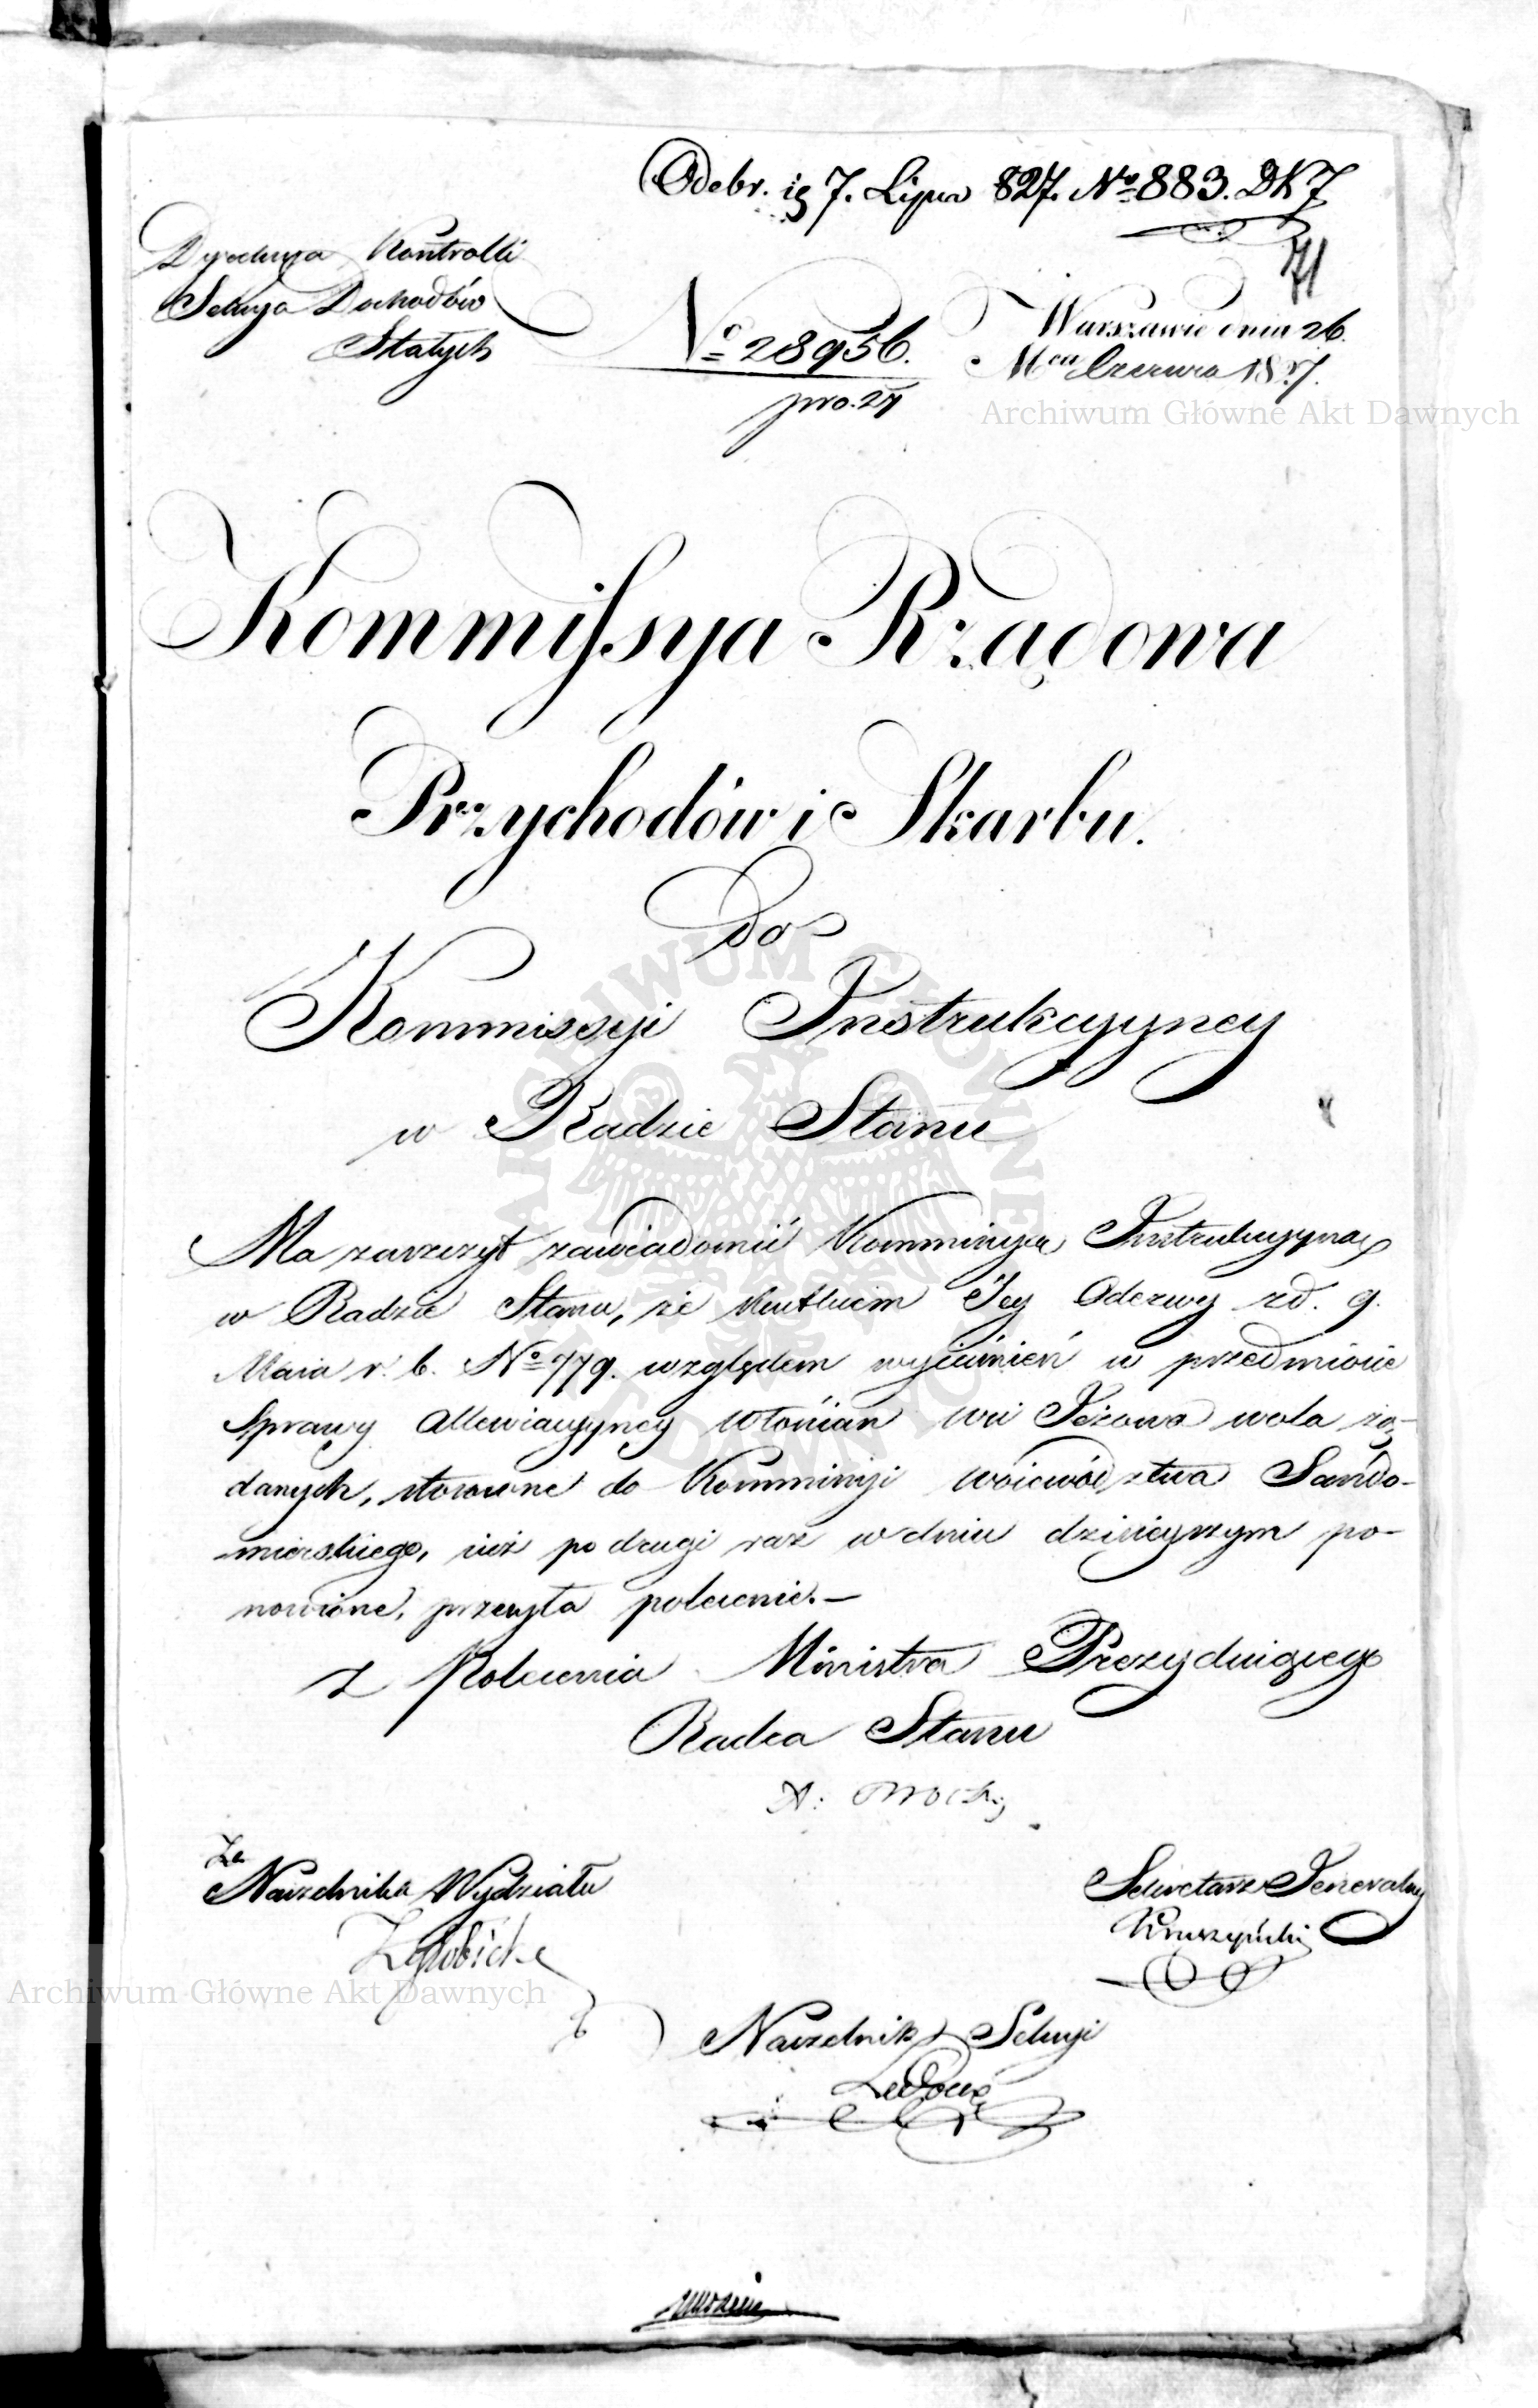 Odebr. ig 7. Lipca 827. No 883. DK7
71
Dyrekcya Kontrolli
Sekcya Dochodów
Stałych
No 28956.
pro. 27
w Warszawie dnia 26.
Mca Czerwca 1827.
Archiwum Główne Akt Dawnych
Kommissya Rządowa
Przychodów i Skarbu.
do
Kommissyi Instrukcyyney
w Radzie Stanu
Ma zaszczyt zawiadomić Kommissyą Instrukcyyną
w Radzie Stanu, że skutkiem Jey Odezwy z d. 9.
Maia r. b. No 779. względem wyiaśnień w przedmiocie
Sprawy Allewiacyyney Włościan wsi Jeżowa wola żą-
danych, stosowne do Kommissyi Woiewództwa Sando-
mierskiego, iuż po drugi raz w dniu dzisieyszym po-
nowione, przesyła polecenie.—
Z Polecenia Ministra Prezyduiącego
Radca Stanu
Za
Naczelnika Wydziału
Sekretarz Jeneralny
Kruszyński
Archiwum Główne Akt Dawnych
Naczelnik Sekcyi
ARCHIWUM GŁÓWNE AKT DAWNYCH